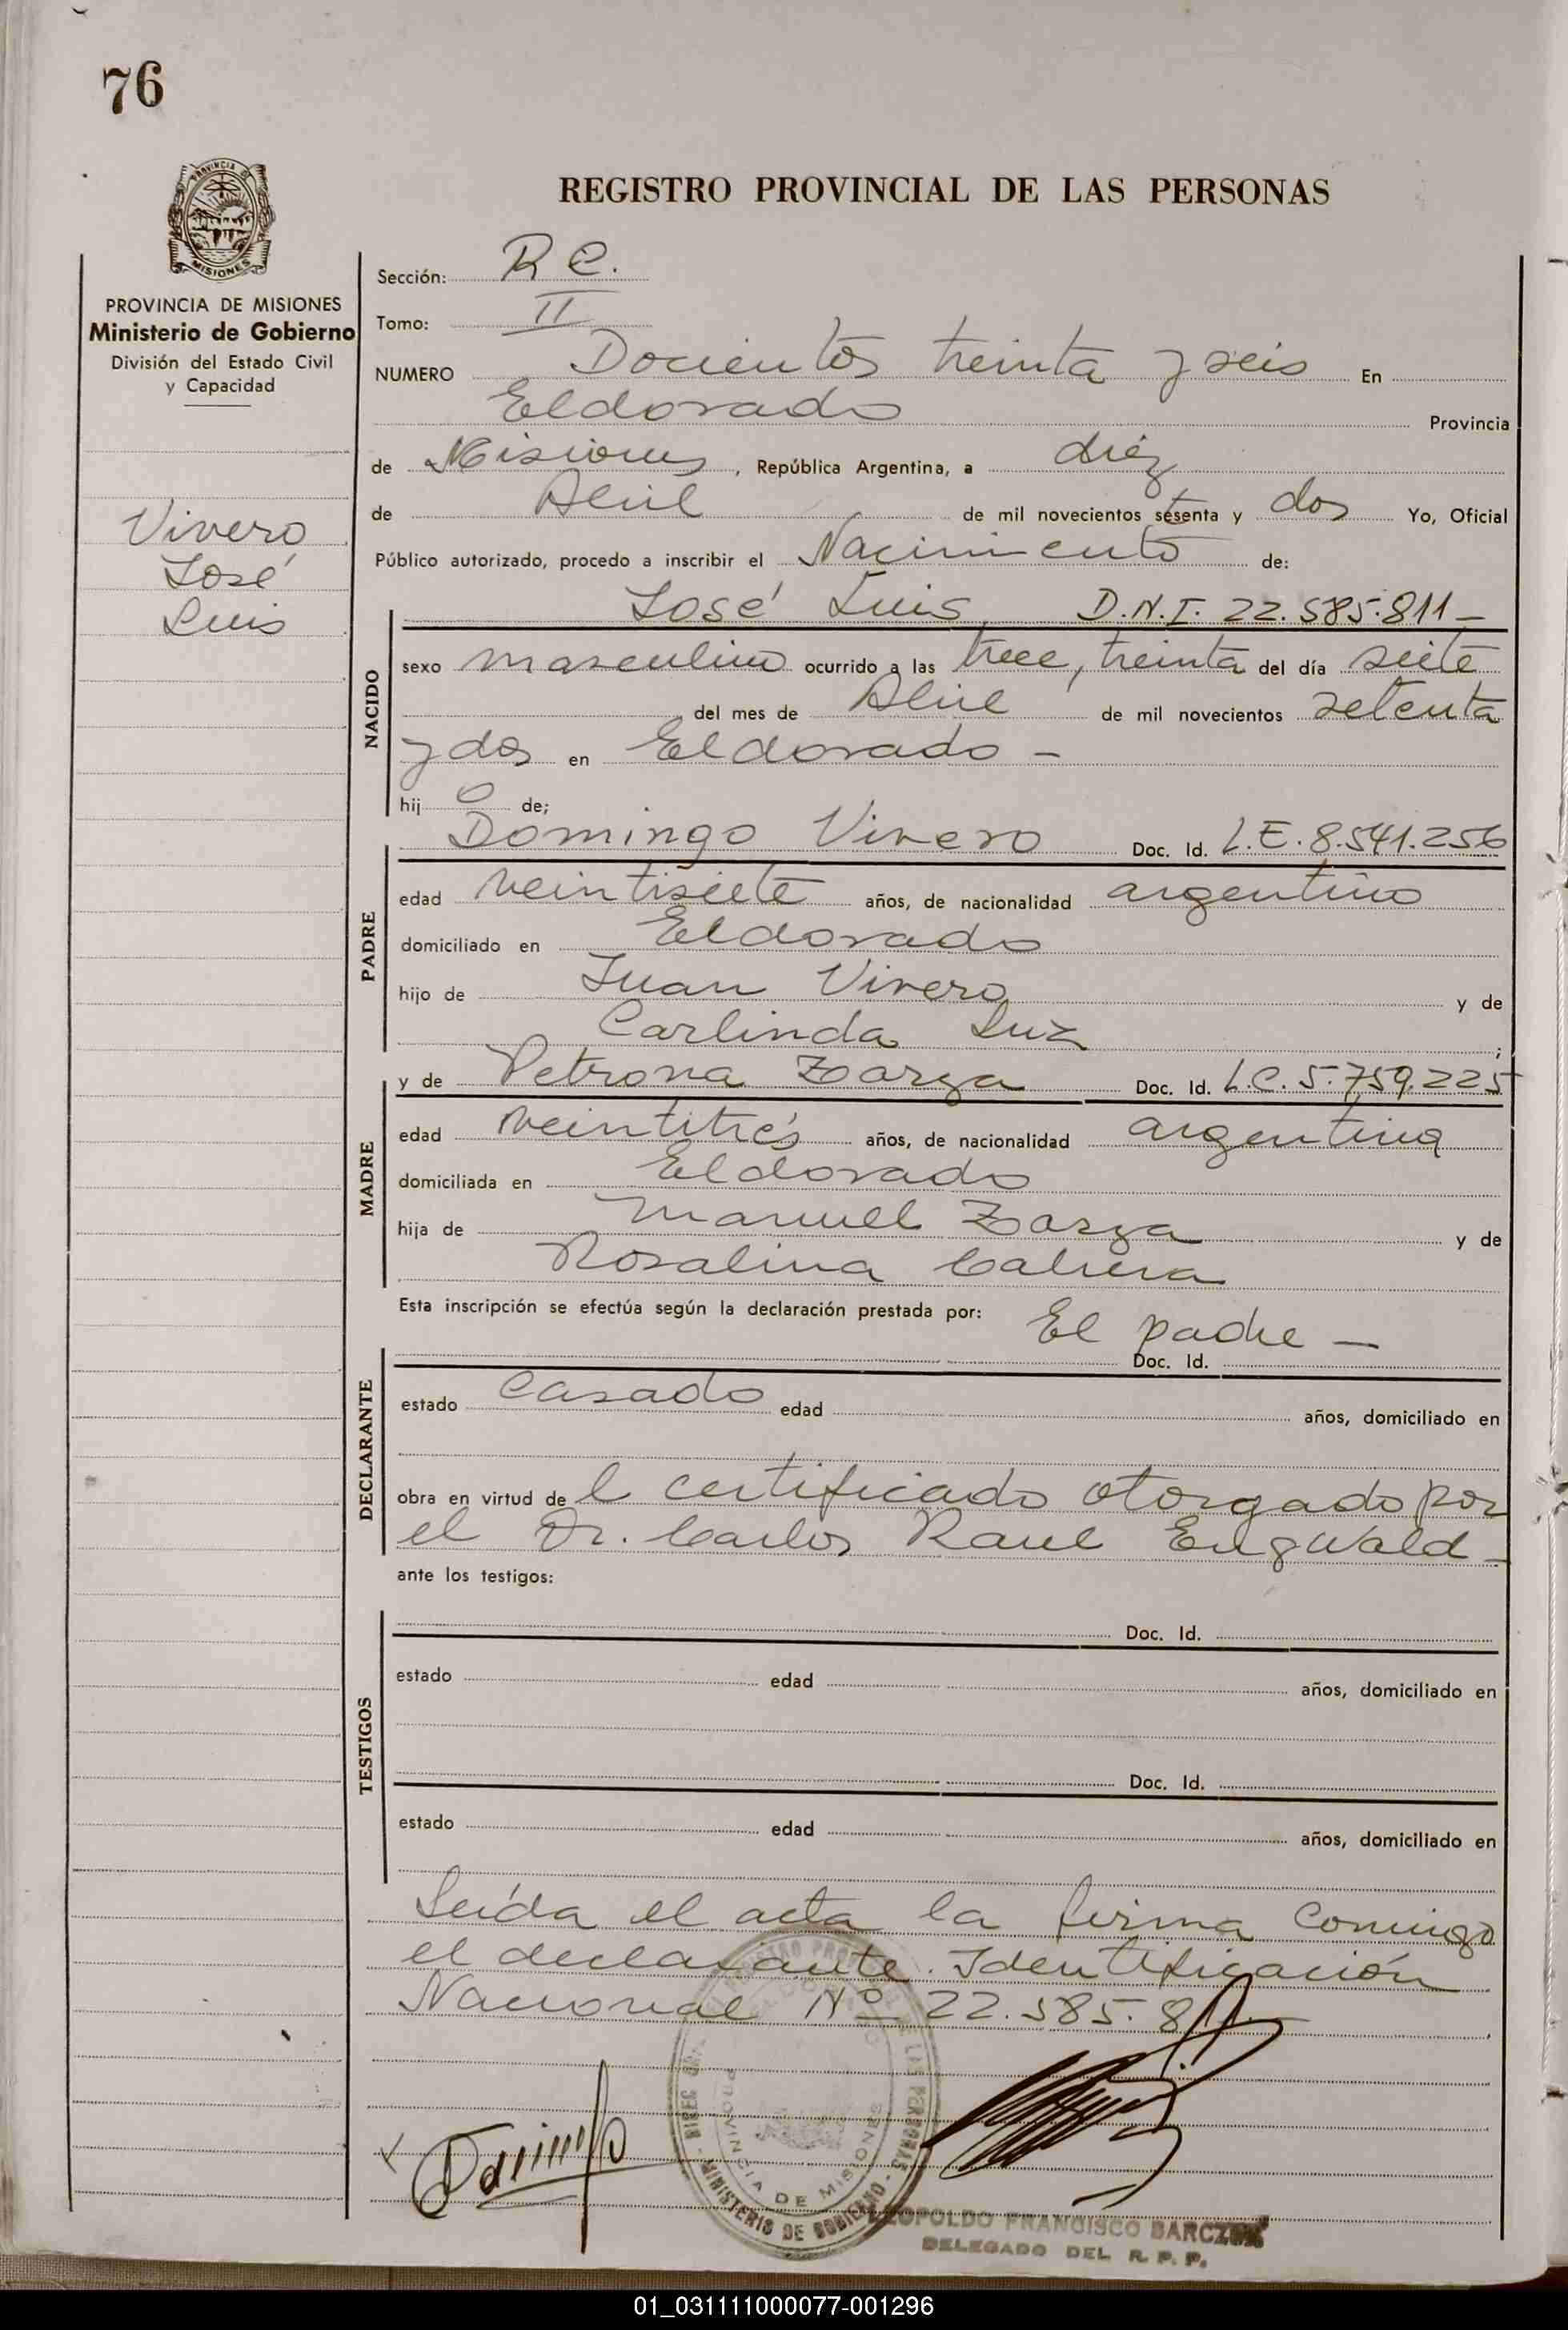 76
PROVINCIA DE MISIONES
Ministerio de Gobierno
División del Estado Civil
y Capacidad
Vivero
José
Luis
REGISTRO PROVINCIAL DE LAS PERSONAS
Sección: R C.
Tomo: II
NUMERO Docientos treinta y seis En
Eldorado Provincia
de Misiones, República Argentina, a diéz
de Abril de mil novecientos setenta y dos Yo, Oficial
Público autorizado, procedo a inscribir el Nacimiento de:
José Luis, D.N.I. 22.585.811 -
NACIDO
sexo masculino ocurrido a las trece, treinta del día siete
del mes de Abril de mil novecientos setenta
y dos en Eldorado -
hij o de;
Domingo Vivero Doc. Id. L.E. 8.541.256
PADRE
edad veintisiete años, de nacionalidad argentino
domiciliado en Eldorado
hijo de Juan Vivero y de
Carlinda Luz ;
y de Petrona Zarza Doc. Id. L.C. 5.759.225
MADRE
edad veintitrés años, de nacionalidad argentina
domiciliada en Eldorado
hija de Manuel Zarza y de
Rosalina Cabrera
Esta inscripción se efectúa según la declaración prestada por: El padre -
Doc. Id.
DECLARANTE
estado Casado edad años, domiciliado en
obra en virtud de l certificado otorgado por
el Dr. Carlos Raul Engwald -
ante los testigos:
Doc. Id.
TESTIGOS
estado edad años, domiciliado en
Doc. Id.
estado edad años, domiciliado en
Leída el acta la firma Conmigo
el declarante. Identificación
Nacional Nº 22.585.811
PROVINCIA DE MISIONES
MINISTERIO DE GOBIERNO
LEOPOLDO FRANCISCO BARCZUK
DELEGADO DEL R. P. P.
01_031111000077-001296